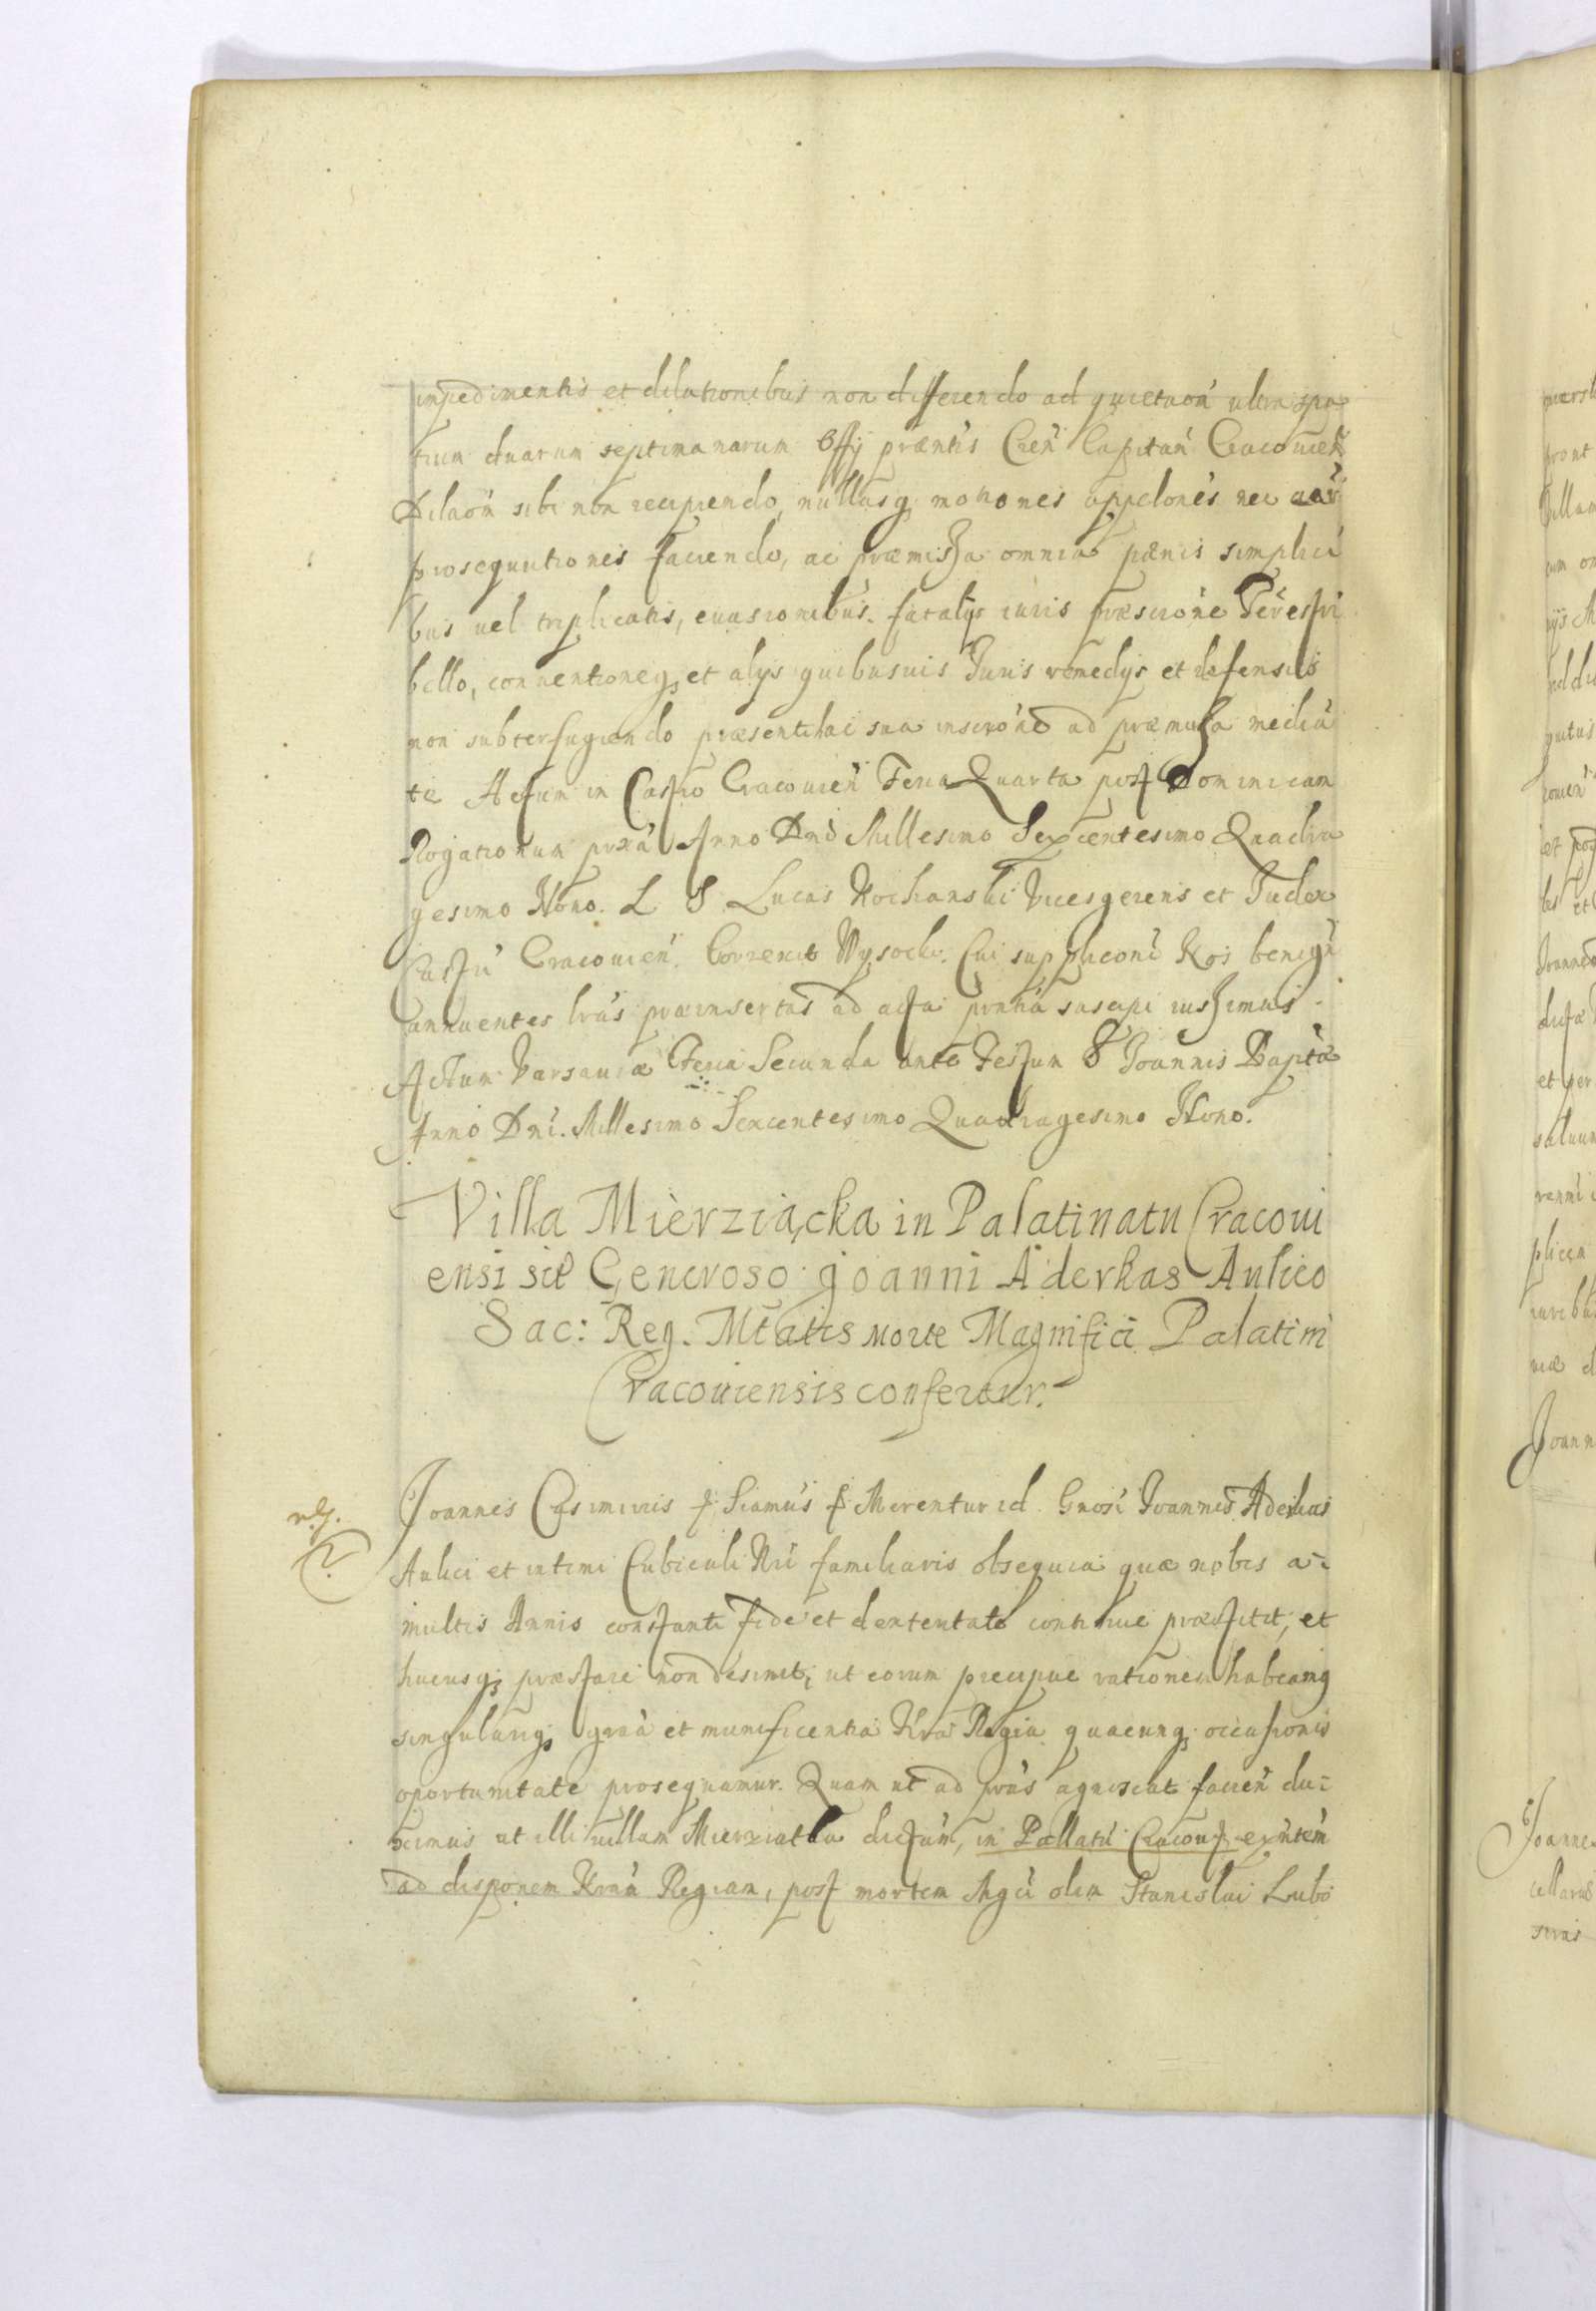 impedimentis et dilationibus non differendo ad quietaōn ultra spa-
tium duarum septimanarum Offij præntis Cren Capitan Cracouień
Dilaōn sibi non recipiendo, nullasq; motiones appelones nec
prosequutiones faciendo, ac præmissa omnia pænis simplici
bus uel triplicatis, euasionibus. fatalijs iuris præscrōne Terestri
bello, conuentioneq; et alijs quibusuis Juris remedijs et defensis
non subterfugiendo præsenti hac sua inscrōne ad præmissa median
te Actum in Castro Cracouień Feria Quarta post Dominicam
Rogationum proxa Anno Dni Millesimo Sexcentesimo Quadra
gesimo Nono. L S Lucas Kochanski Vicesgerens et Judex
Castrī Cracouień. Correxit Wysocki. Cui supplicōni Nos benigń
annuentes lrás præinsertas ad acta pnńtia suscipi iussimus.
Actum Varsauiæ Feria Secunda ante Festum S Joannis Baptæ
Anno Dni. Millesimo Sexcentesimo Quadragesimo Nono.
Villa Mierziącka in Palatinatu Cracoui
ensi sit Generoso Joanni Aderkas Aulico
Sac: Reg. Mtatis morte Magnifici Palatini
Cracouiensis confertur.
Joannes Casimirus f Siamus f Merentur id Gnosi Joannis Aderkas
Aulici et intimi Cubiculi Nri familiaris obsequia quæ nobis a
multis Annis constanti fide et dexteritate continue præstitit, et
hucusq; præstare non desinit, ut eorum precipue rationem habeamq
singulariq; gráa et munificentia Nra Regia quacunq; occasionis
oportunitate prosequamur. Quam ut ad prǽs agnoscat facień du-
ximus ut illi uillam Mierziatka dictam, in Pallatu Cracou: exńtem
ad disponem Nrám Regiam, post mortem Mgci olim Stanislai Lubo